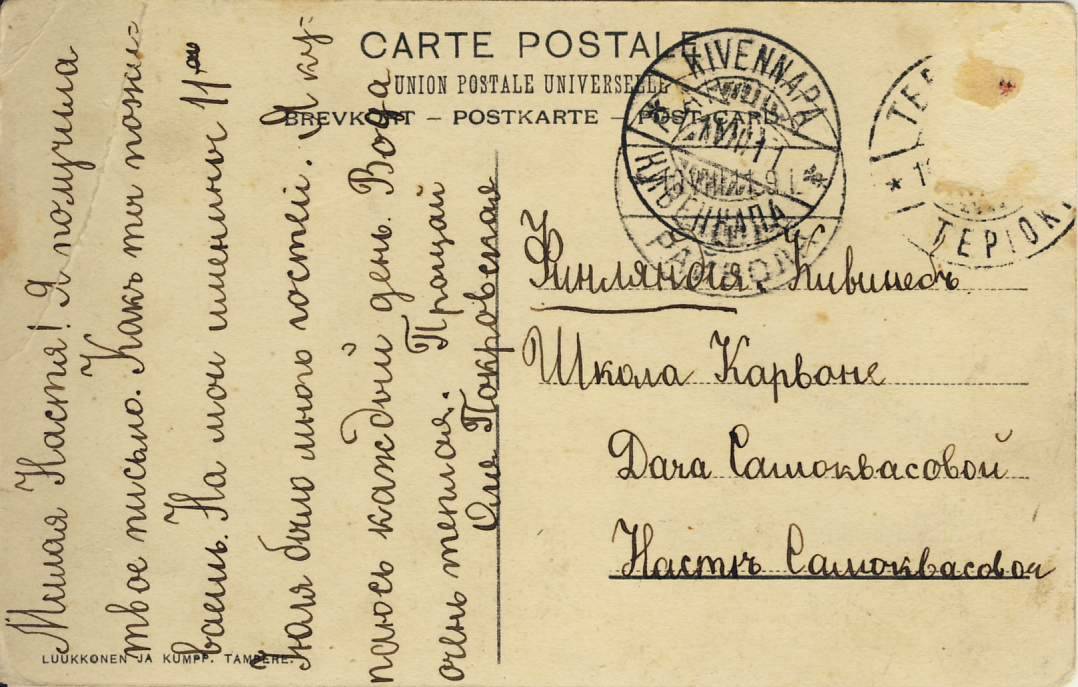 CARTE POSTALE
UNION POSTALE UNIVERSELLE
BREVKORT – POSTKARTE – POST-CARD
Милая Настя! Я получила
твое письмо. Какъ ты пожи-
ваешь. На мои именины 11го
Іюля было много гостей. Я ку-
паюсь каждый день. Вода
очень теплая. Прощай
Оля Покровская
KIVENNAPA
КИВЕННАПА
РАЙВОЛА
TERIOKI
ТЕРІОКИ
Финляндія. Кивинебъ
Школа Карвоне
Дача Самоквасовой
Настѣ Самоквасовой
LUUKKONEN JA KUMPP. TAMPERE.